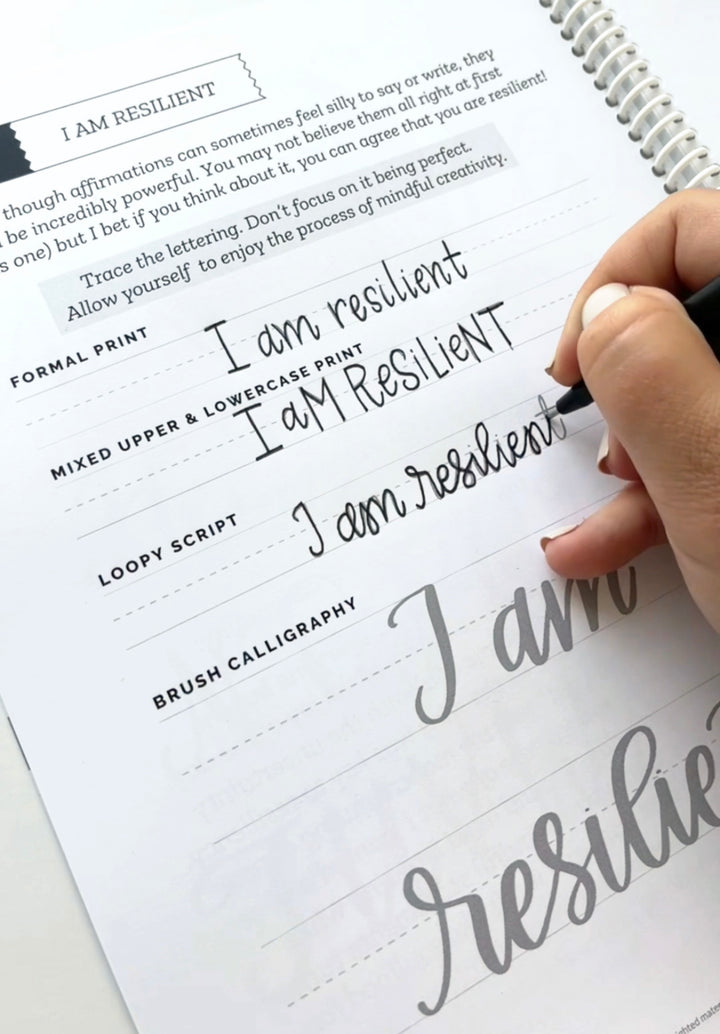 I AM RESILIENT
though affirmations can sometimes feel silly to say or write, they
be incredibly powerful. You may not believe them all right at first
one) but I bet if you think about it, you can agree that you are resilient!
Trace the lettering. Don't focus on it being perfect.
Allow yourself to enjoy the process of mindful creativity.
FORMAL PRINT
I am resilient
MIXED UPPER & LOWERCASE PRINT
I aM ReSiLieNT
LOOPY SCRIPT
I am resilient
BRUSH CALLIGRAPHY
I am
resilie